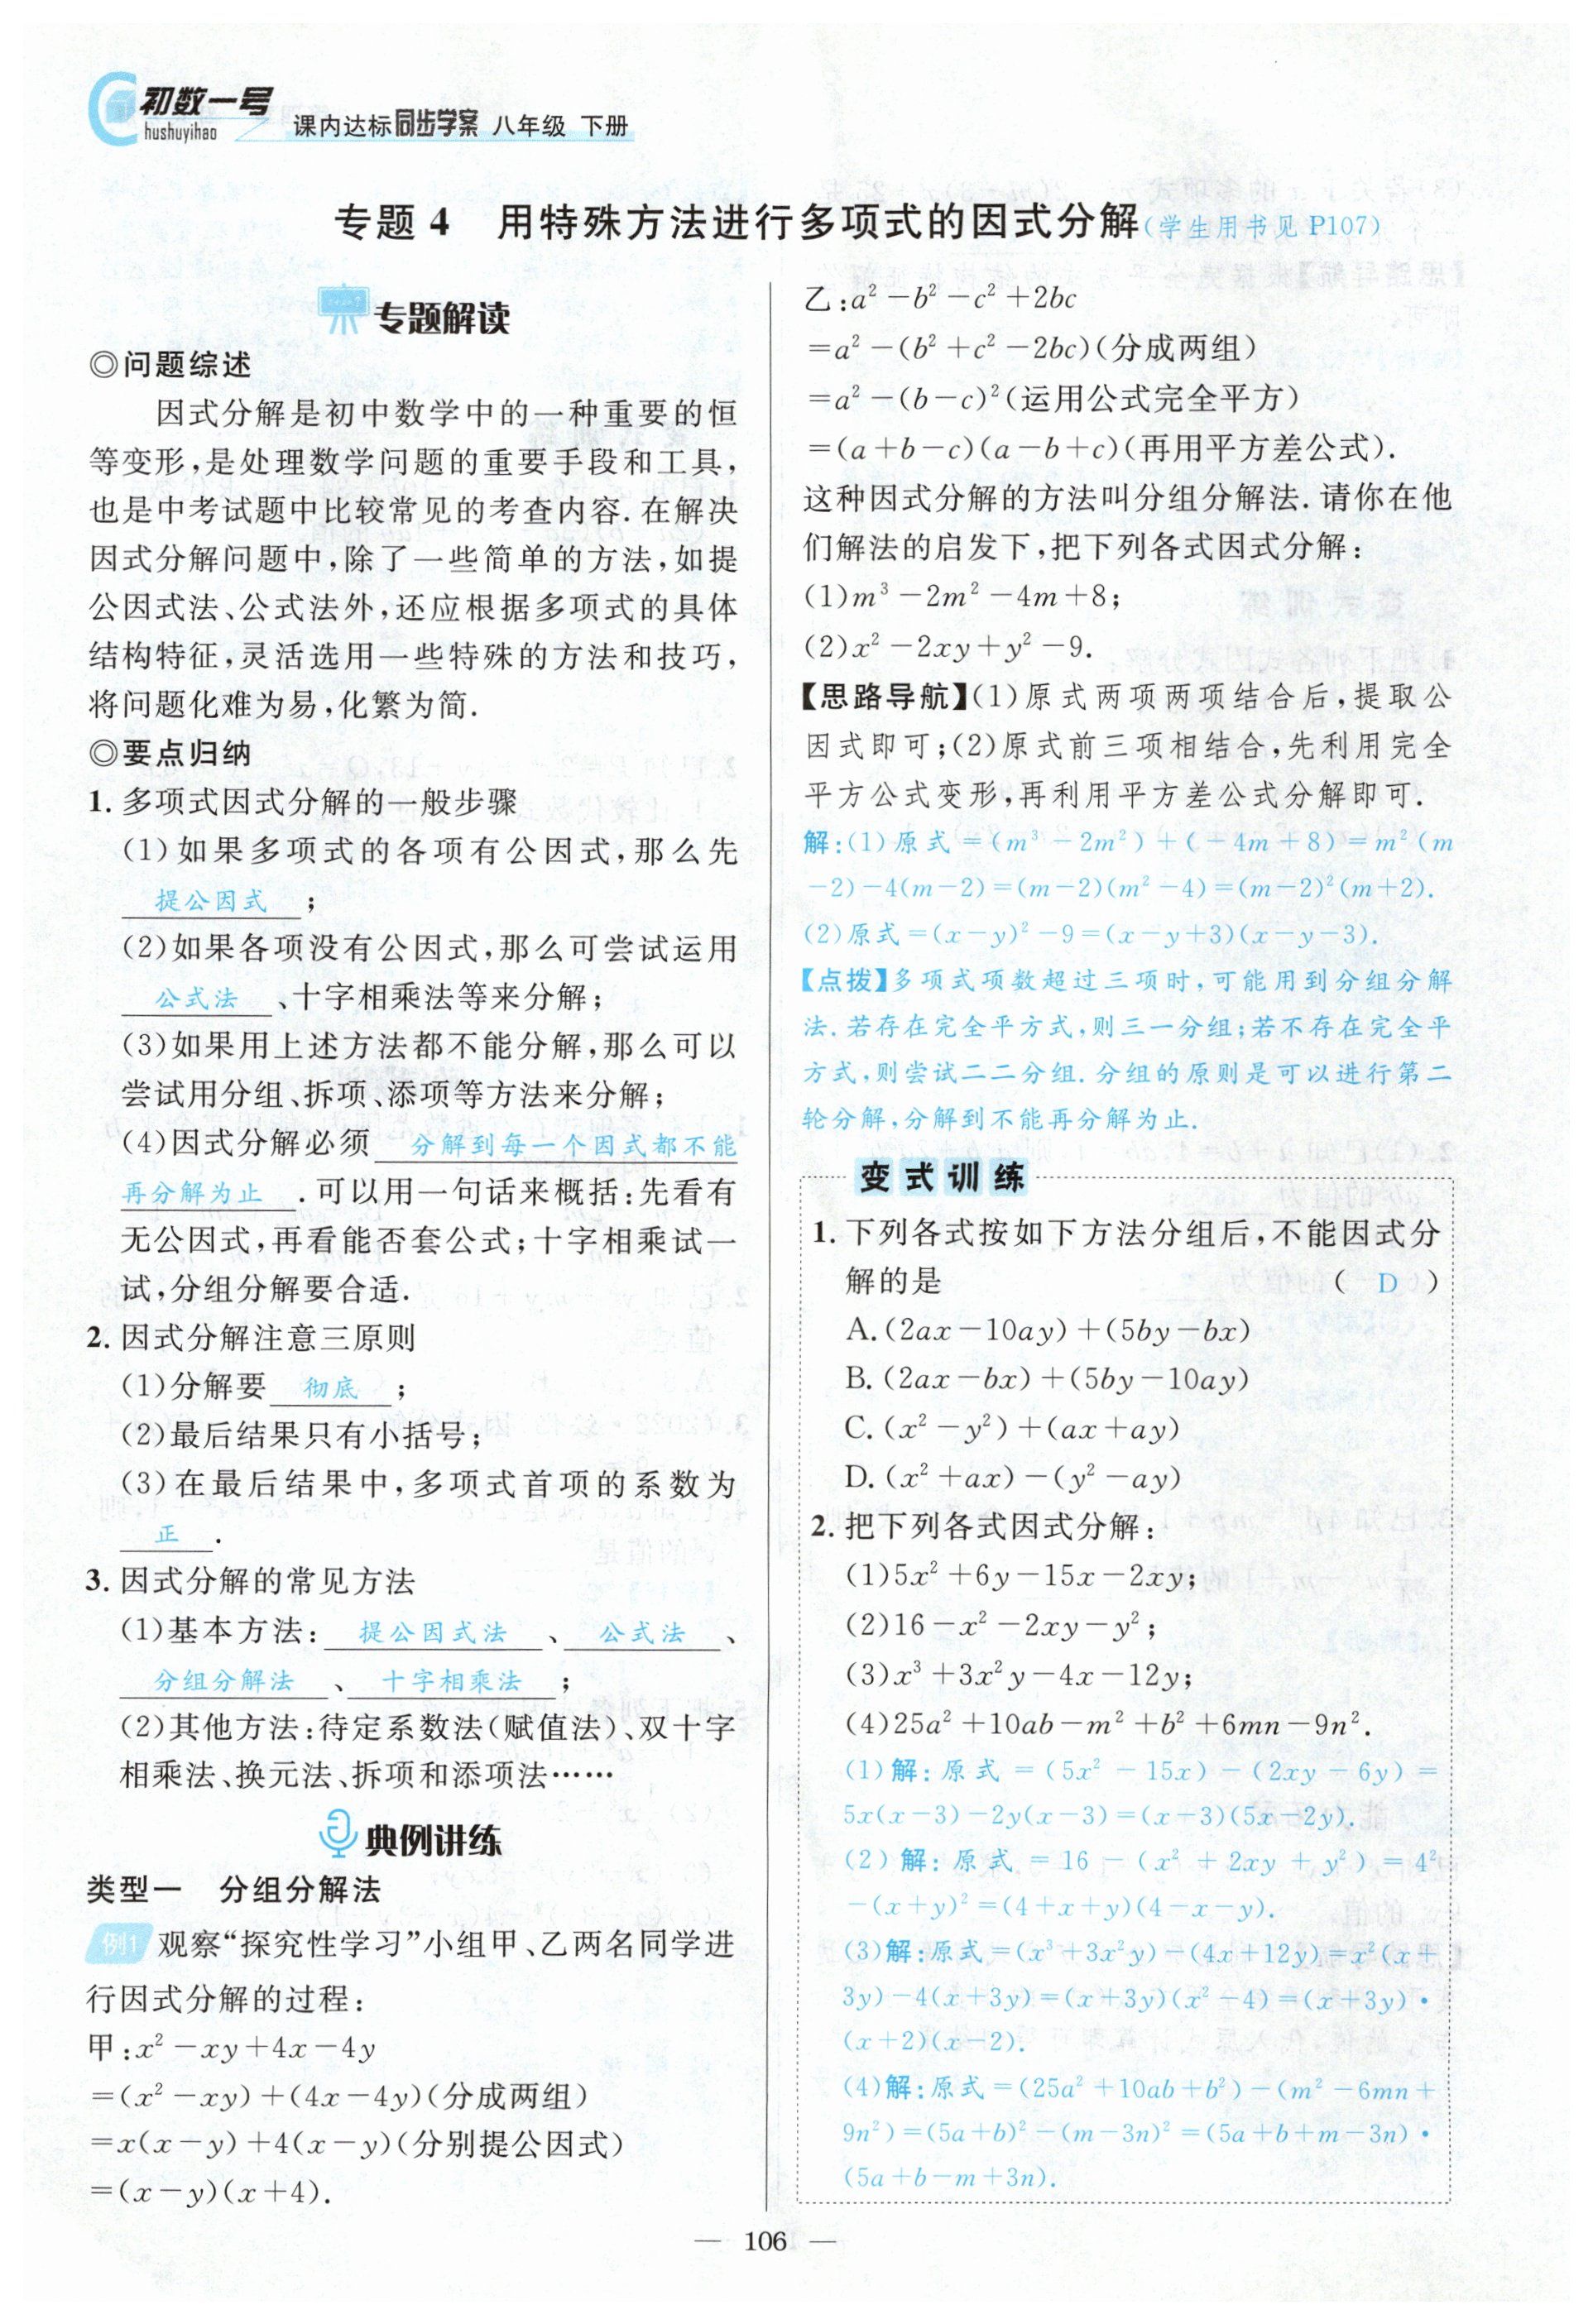 初数一号
hushuyihao
课内达标同步学案 八年级 下册
专题4 用特殊方法进行多项式的因式分解(学生用书见P107)
专题解读
◎问题综述
因式分解是初中数学中的一种重要的恒
等变形,是处理数学问题的重要手段和工具,
也是中考试题中比较常见的考查内容.在解决
因式分解问题中,除了一些简单的方法,如提
公因式法、公式法外,还应根据多项式的具体
结构特征,灵活选用一些特殊的方法和技巧,
将问题化难为易,化繁为简.
◎要点归纳
1. 多项式因式分解的一般步骤
(1)如果多项式的各项有公因式,那么先
提公因式 ;
(2)如果各项没有公因式,那么可尝试运用
公式法 、十字相乘法等来分解;
(3)如果用上述方法都不能分解,那么可以
尝试用分组、拆项、添项等方法来分解;
(4)因式分解必须 分解到每一个因式都不能
再分解为止 .可以用一句话来概括:先看有
无公因式,再看能否套公式;十字相乘试一
试,分组分解要合适.
2. 因式分解注意三原则
(1)分解要 彻底 ;
(2)最后结果只有小括号;
(3)在最后结果中,多项式首项的系数为
正 .
3. 因式分解的常见方法
(1)基本方法: 提公因式法 、 公式法 、
分组分解法 、 十字相乘法 ;
(2)其他方法:待定系数法(赋值法)、双十字
相乘法、换元法、拆项和添项法……
典例讲练
类型一 分组分解法
例1 观察“探究性学习”小组甲、乙两名同学进
行因式分解的过程:
甲:x²-xy+4x-4y
=(x²-xy)+(4x-4y)(分成两组)
=x(x-y)+4(x-y)(分别提公因式)
=(x-y)(x+4).
乙:a²-b²-c²+2bc
=a²-(b²+c²-2bc)(分成两组)
=a²-(b-c)²(运用公式完全平方)
=(a+b-c)(a-b+c)(再用平方差公式).
这种因式分解的方法叫分组分解法.请你在他
们解法的启发下,把下列各式因式分解:
(1)m³-2m²-4m+8;
(2)x²-2xy+y²-9.
【思路导航】(1)原式两项两项结合后,提取公
因式即可;(2)原式前三项相结合,先利用完全
平方公式变形,再利用平方差公式分解即可.
解:(1)原式=(m³-2m²)+(-4m+8)=m²(m
-2)-4(m-2)=(m-2)(m²-4)=(m-2)²(m+2).
(2)原式=(x-y)²-9=(x-y+3)(x-y-3).
【点拨】多项式项数超过三项时,可能用到分组分解
法.若存在完全平方式,则三一分组;若不存在完全平
方式,则尝试二二分组.分组的原则是可以进行第二
轮分解,分解到不能再分解为止.
变式训练
1. 下列各式按如下方法分组后,不能因式分
解的是 ( D )
A.(2ax-10ay)+(5by-bx)
B.(2ax-bx)+(5by-10ay)
C.(x²-y²)+(ax+ay)
D.(x²+ax)-(y²-ay)
2. 把下列各式因式分解:
(1)5x²+6y-15x-2xy;
(2)16-x²-2xy-y²;
(3)x³+3x²y-4x-12y;
(4)25a²+10ab-m²+b²+6mn-9n².
(1)解:原式=(5x²-15x)-(2xy-6y)=
5x(x-3)-2y(x-3)=(x-3)(5x-2y).
(2)解:原式=16-(x²+2xy+y²)=4²
-(x+y)²=(4+x+y)(4-x-y).
(3)解:原式=(x³+3x²y)-(4x+12y)=x²(x+
3y)-4(x+3y)=(x+3y)(x²-4)=(x+3y)·
(x+2)(x-2).
(4)解:原式=(25a²+10ab+b²)-(m²-6mn+
9n²)=(5a+b)²-(m-3n)²=(5a+b+m-3n)·
(5a+b-m+3n).
— 106 —